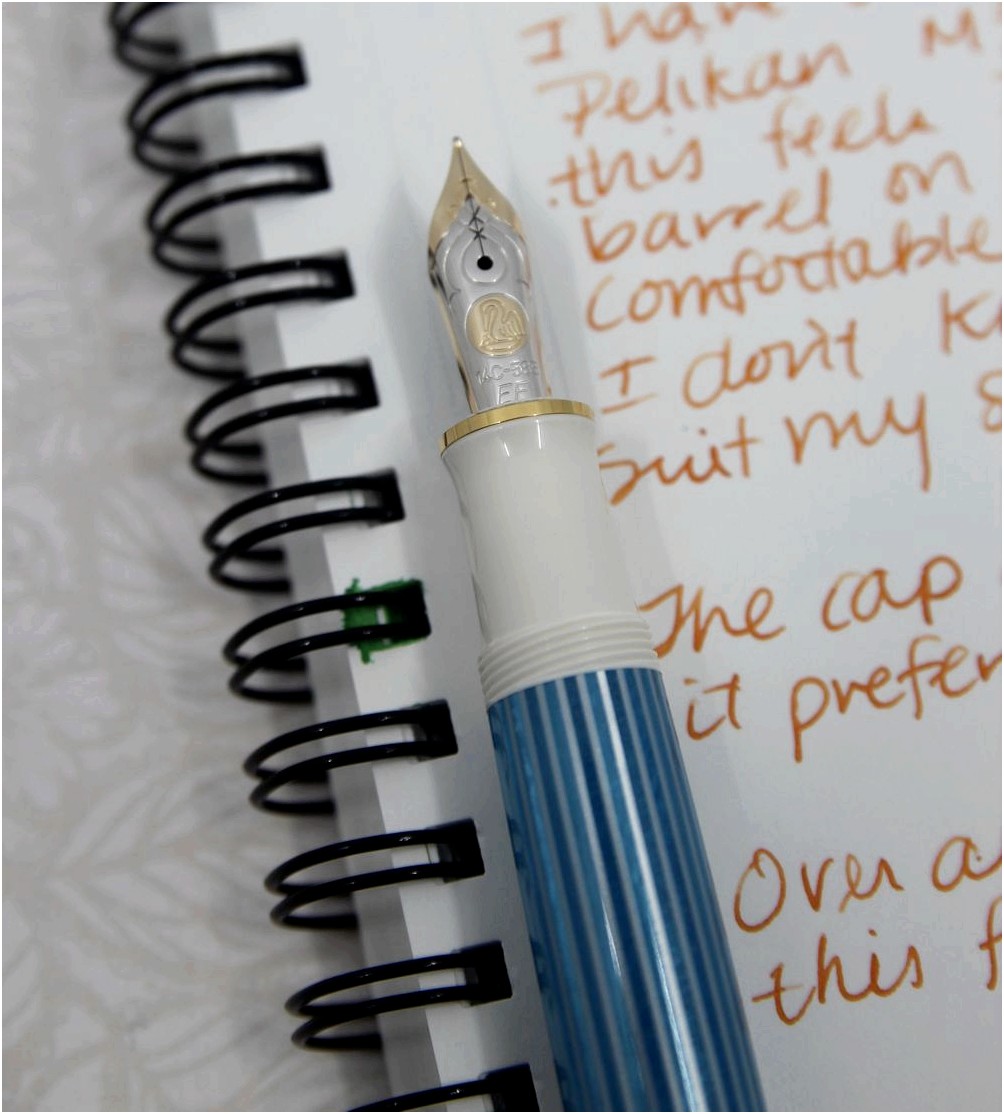 I have
Pelikan M
this feels
barrel on
comfortable
I don't K
suit my s
The cap
it prefer
Over a
this f
14C-585
EF